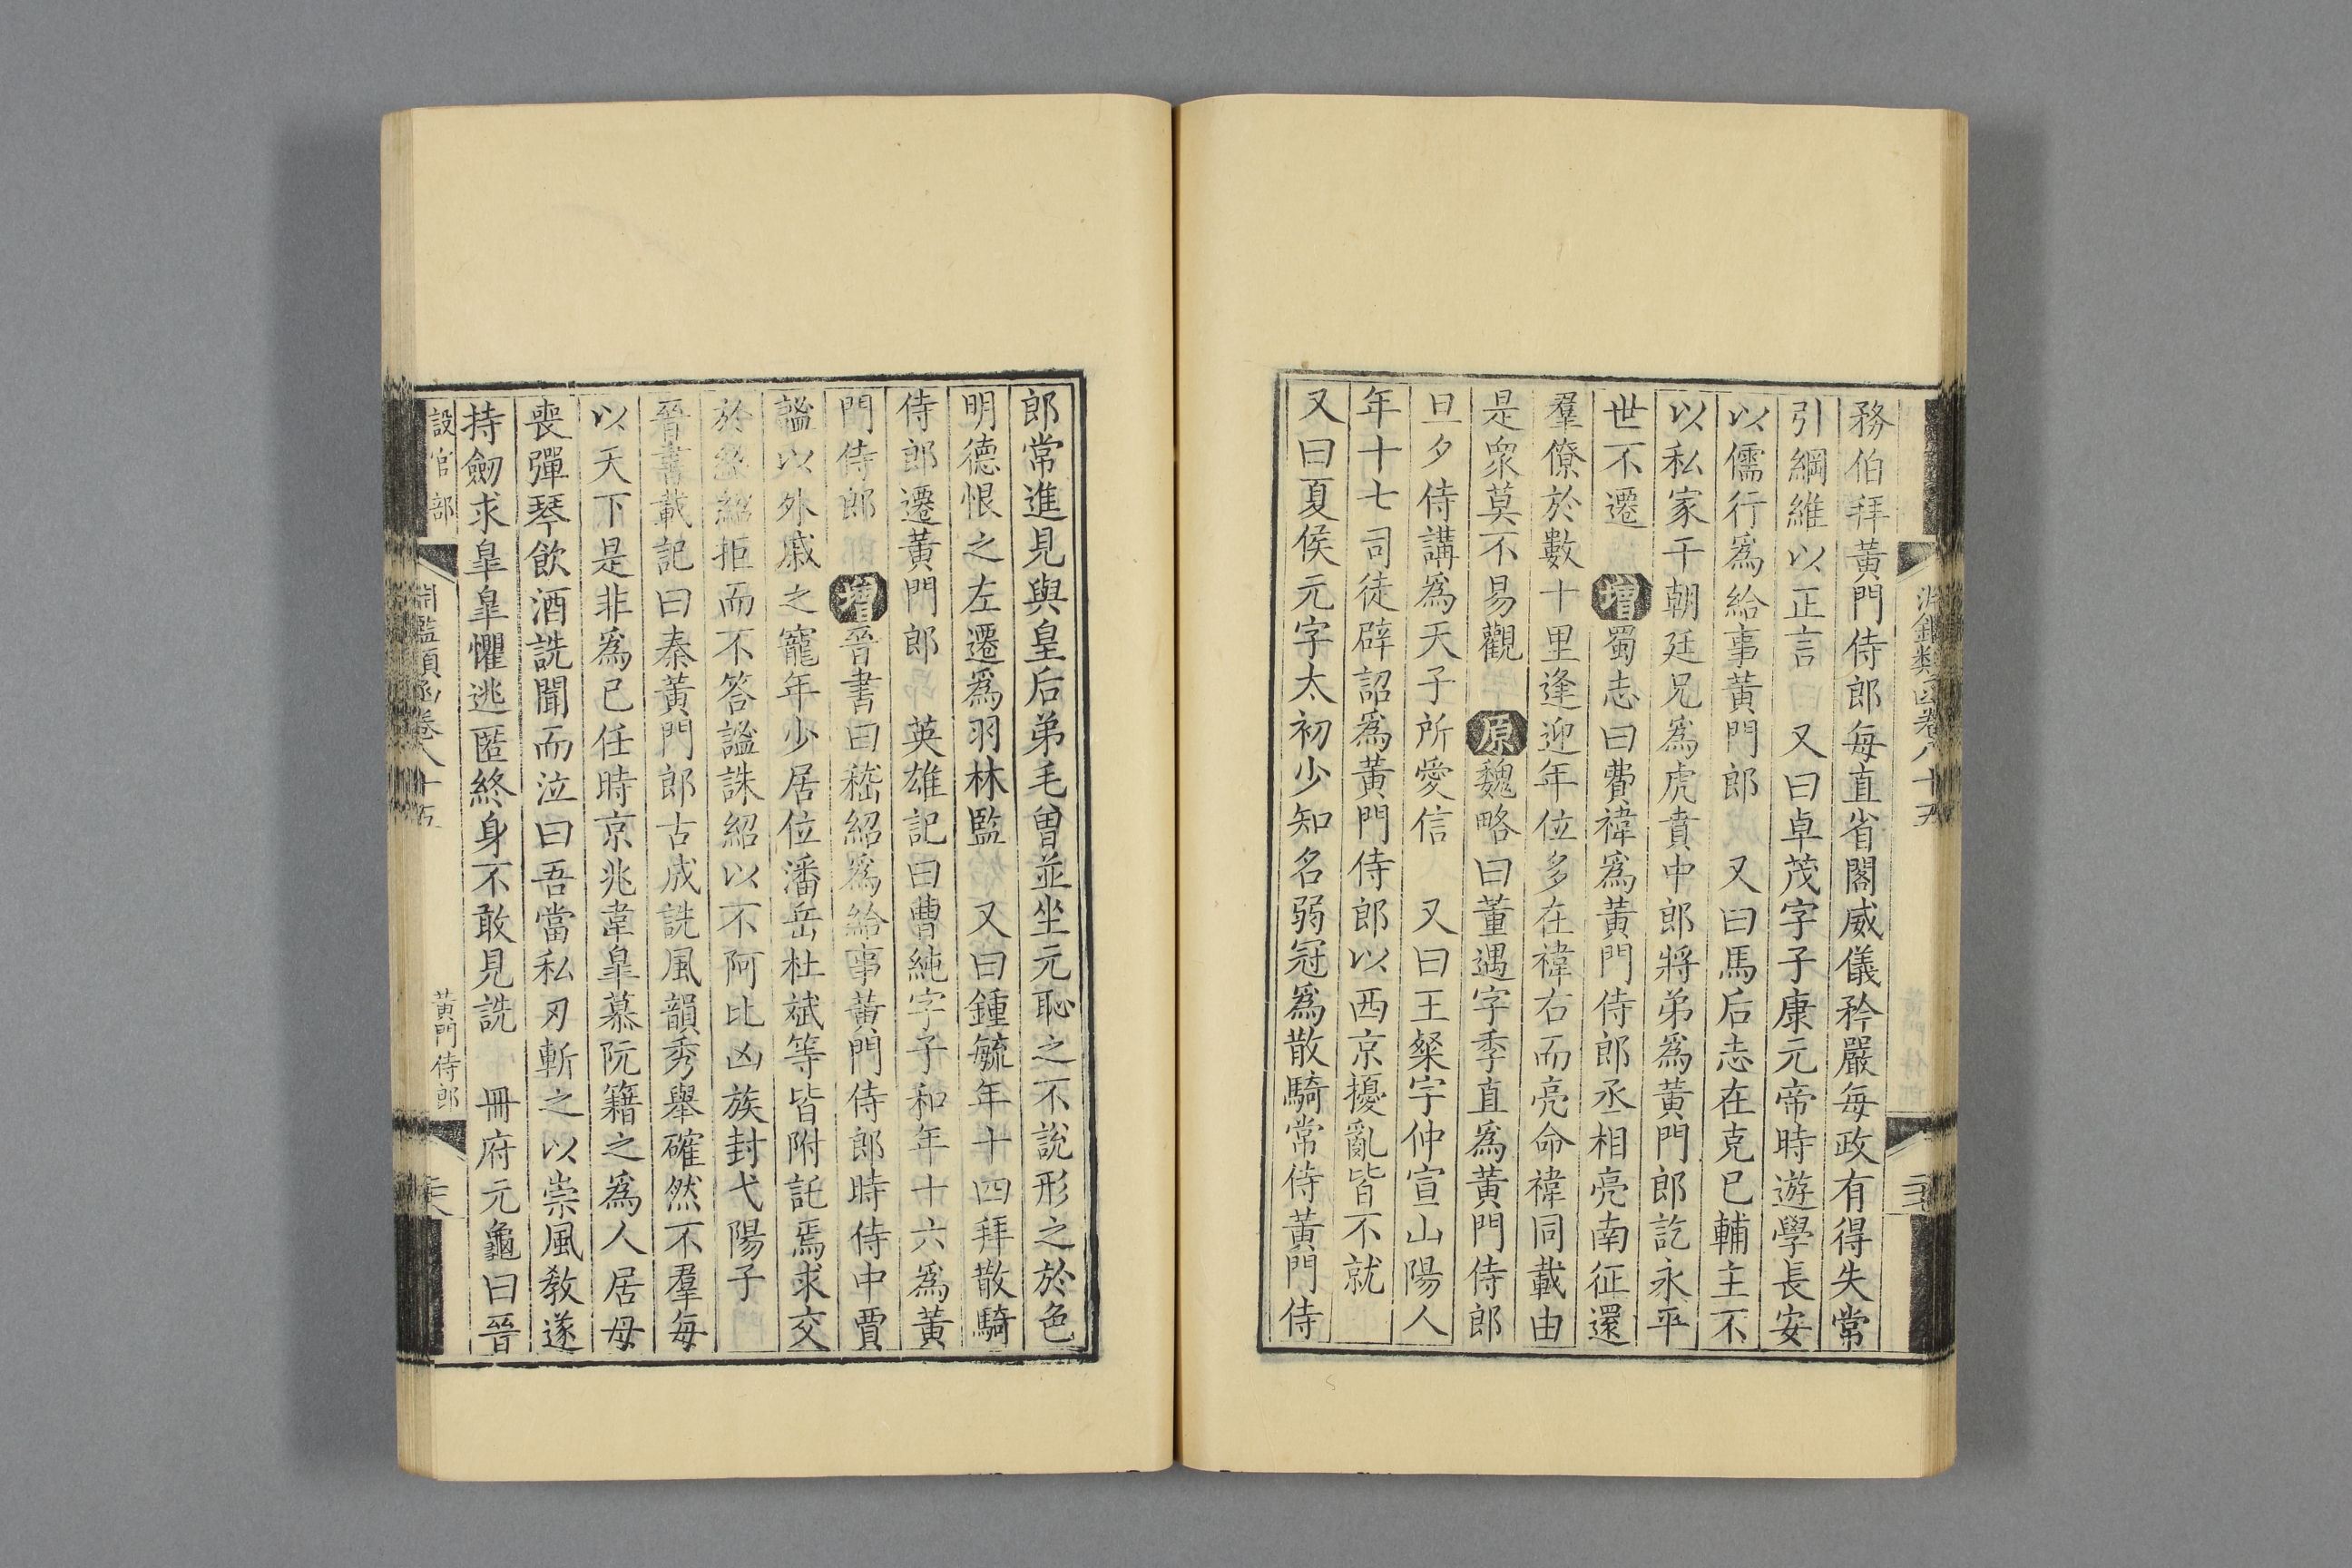 務伯拜黃門侍郎每直省閣威儀矜嚴每政有得失常
引綱維以正言 又曰卓茂字子康元帝時遊學長安
以儒行爲給事黃門郎 又曰馬后志在克巳輔主不
以私家干朝廷兄爲虎賁中郎將弟爲黃門郎訖永平
世不遷 增蜀志曰費禕爲黃門侍郎丞相亮南征還
羣僚於數十里逢迎年位多在禕右而亮命禕同載由
是衆莫不易觀 原魏略曰董遇字季直爲黃門侍郎
旦夕侍講爲天子所愛信 又曰王粲字仲宣山陽人
年十七司徒辟詔爲黃門侍郎以西京擾亂皆不就
又曰夏侯元字太初少知名弱冠爲散騎常侍黃門侍
郎常進見與皇后弟毛曾並坐元恥之不說形之於色
明德恨之左遷爲羽林監 又曰鍾毓年十四拜散騎
侍郎遷黃門郎 英雄記曰曹純字子和年十六爲黃
門侍郎 增晉書曰嵇紹爲給事黃門侍郎時侍中賈
謐以外戚之寵年少居位潘岳杜斌等皆附託焉求交
於紹紹拒而不答謐誅紹以不阿比凶族封弋陽子
晉書載記曰秦黃門郎古成詵風韻秀舉確然不羣每
以天下是非爲己任時京兆韋臯慕阮籍之爲人居母
喪彈琴飲酒詵聞而泣曰吾當私刃斬之以崇風敎遂
持劒求臯臯懼逃匿終身不敢見詵 冊府元龜曰晉
設官部
淵鑑類函卷八十五
黃門侍郎